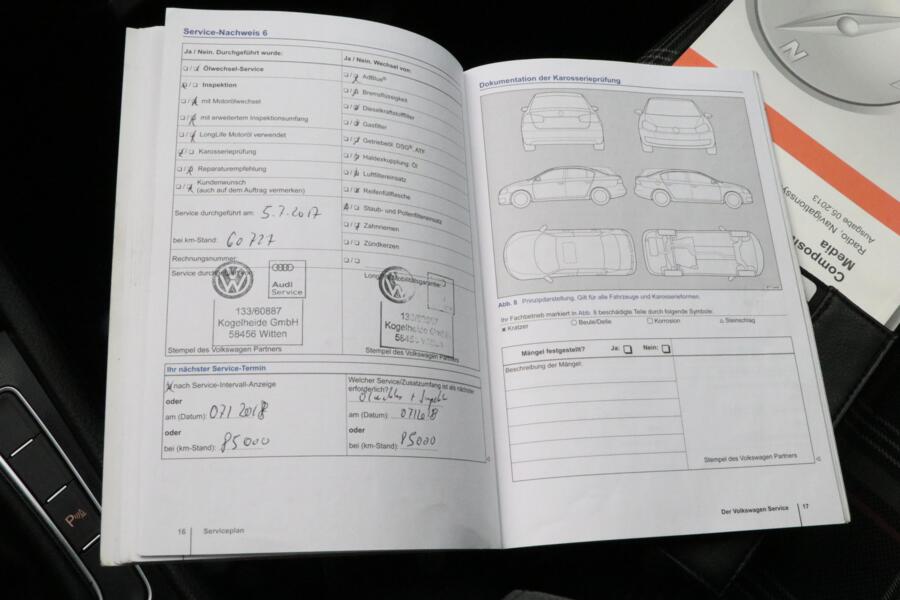 Service-Nachweis 6
Ja / Nein. Durchgeführt wurde:
Ölwechsel-Service
Inspektion
mit Motorölwechsel
mit erweitertem Inspektionsumfang
LongLife Motoröl verwendet
Karosserieprüfung
Reparaturempfehlung
Kundenwunsch
(auch auf dem Auftrag vermerken)
Service durchgeführt am: 5.7.2017
bei km-Stand: 60727
Rechnungsnummer
Service durchgeführt
Audi
Service
133/60887
Kogelheide GmbH
58456 Witten
Stempel des Volkswagen Partners
Ja / Nein. Wechsel von:
AdBlue®
Bremsflüssigkeit
Dieselkraftstofffilter
Gasfilter
Getriebeöl, DSG®, ATF
Haldexkupplung: Öl
Luftfiltereinsatz
Reifenfüllflasche
Staub- und Pollenfiltereinsatz
Zahnriemen
Zündkerzen
133/60887
Kogelheide GmbH
Stempel des Volkswagen Partners
Ihr nächster Service-Termin
nach Service-Intervall-Anzeige
oder
am (Datum): 07/2018
oder
bei (km-Stand): 85000
Welcher Service/Zusatzumfang ist als nächster
erforderlich?
am (Datum): 07/2018
oder
bei (km-Stand): 85000
16 Serviceplan
Dokumentation der Karosserieprüfung
Abb. 8 Prinzipdarstellung. Gilt für alle Fahrzeuge und Karosserieformen.
Ihr Fachbetrieb markiert in Abb. 8 beschädigte Teile durch folgende Symbole:
Kratzer
Beule/Delle
Korrosion
Steinschlag
Mängel festgestellt? Ja: Nein:
Beschreibung der Mängel:
Stempel des Volkswagen Partners
Der Volkswagen Service 17
N
Media
Radio, Navigationssy
Ausgabe 05.2013
P